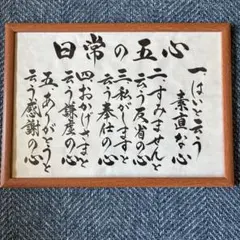 日常の五心
一、はいと云う
素直な心
二、すみませんと
云う反省の心
三、私がしますと
云う奉仕の心
四、おかげさまと
云う謙虚の心
五、ありがとうと
云う感謝の心